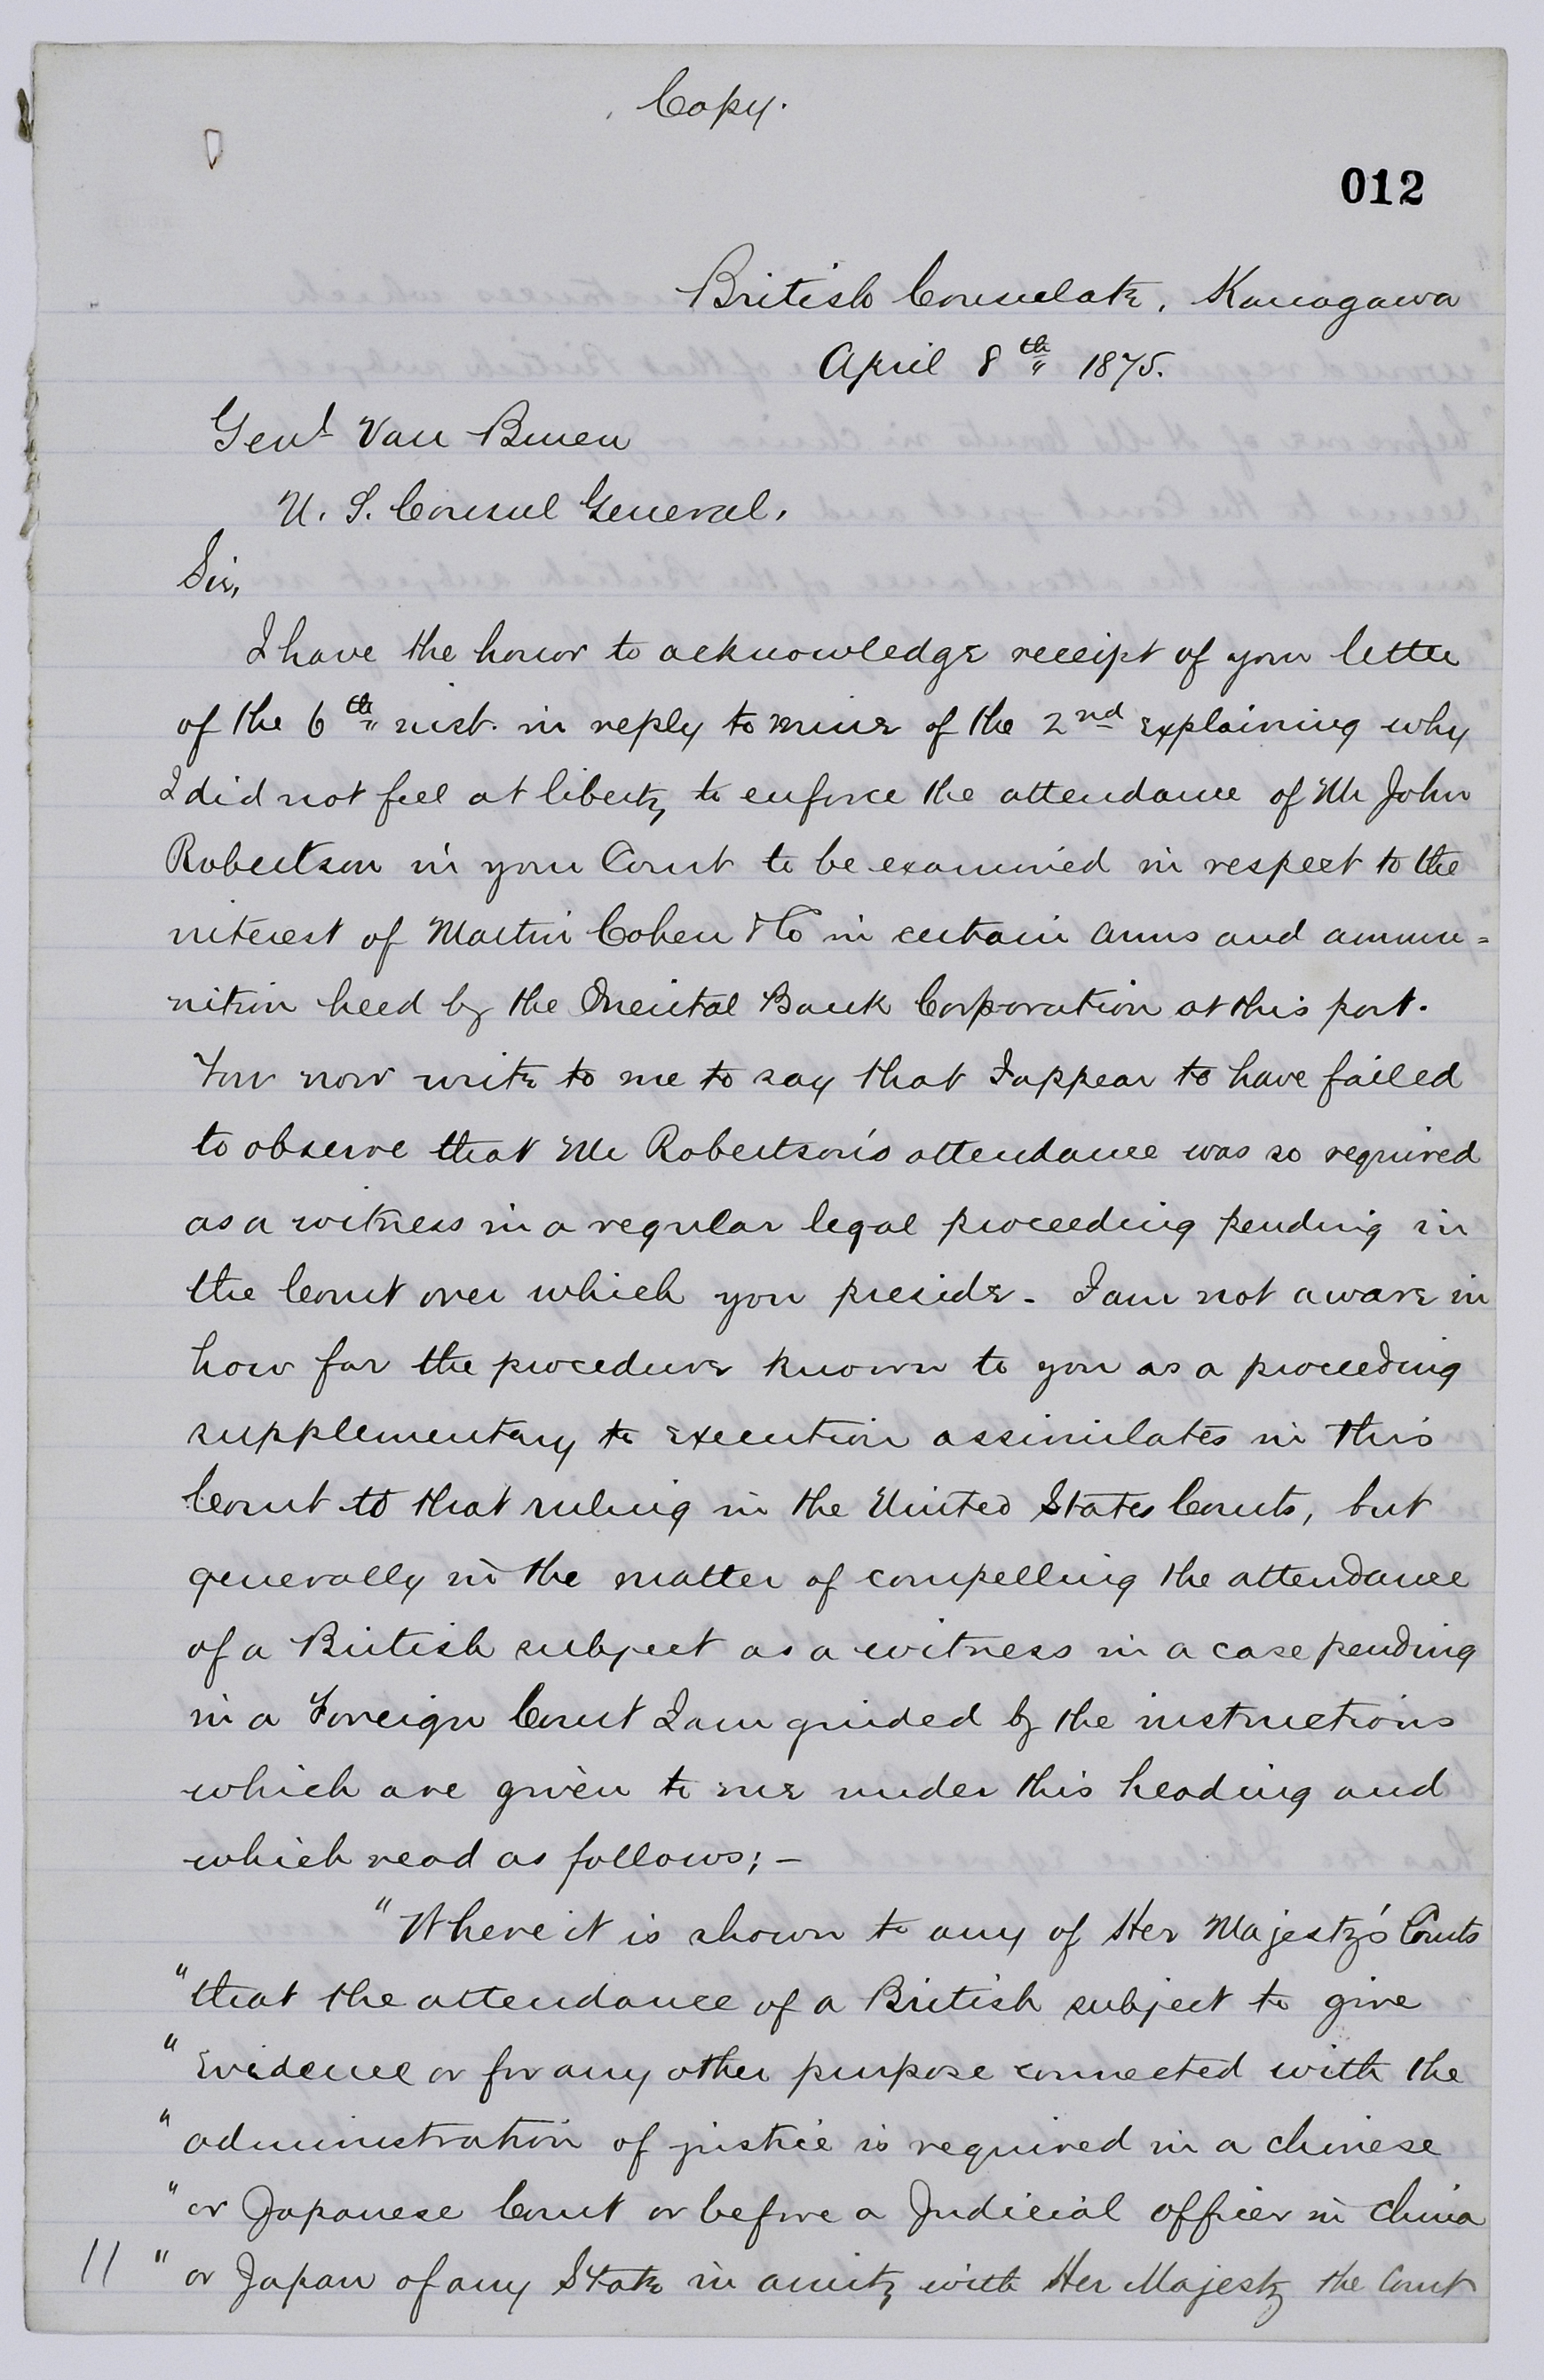 Copy.
012
British Consulate, Kanagawa
April 8th 1875.
Genl Van Buren
U. S. Consul General,
Sir,
I have the honor to acknowledge receipt of your letter
of the 6th inst. in reply to mine of the 2nd explaining why
I did not feel at liberty to enforce the attendance of Mr John
Robertson in your Court to be examined in respect to the
interest of Martin Cohen & Co in certain arms and ammu=
nition held by the Oriental Bank Corporation at this port.
You now write to me to say that I appear to have failed
to observe that Mr Robertson's attendance was so required
as a witness in a regular legal proceeding pending in
the Court over which you preside. I am not aware in
how far the procedure known to you as a proceeding
supplementary to execution assimilates in this
Court to that ruling in the United States Courts, but
generally in the matter of compelling the attendance
of a British subject as a witness in a case pending
in a Foreign Court I am guided by the instructions
which are given to me under this heading and
which read as follows; –
"Where it is shown to any of Her Majesty's Courts
"that the attendance of a British subject to give
"Evidence or for any other purpose connected with the
"administration of justice is required in a Chinese
"or Japanese Court or before a Judicial officer in China
11 "or Japan of any State in amity with Her Majesty the Court